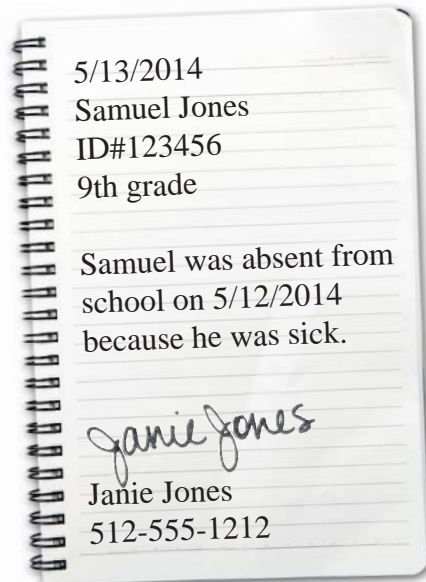 5/13/2014
Samuel Jones
ID#123456
9th grade
Samuel was absent from
school on 5/12/2014
because he was sick.
Janie Jones
Janie Jones
512-555-1212